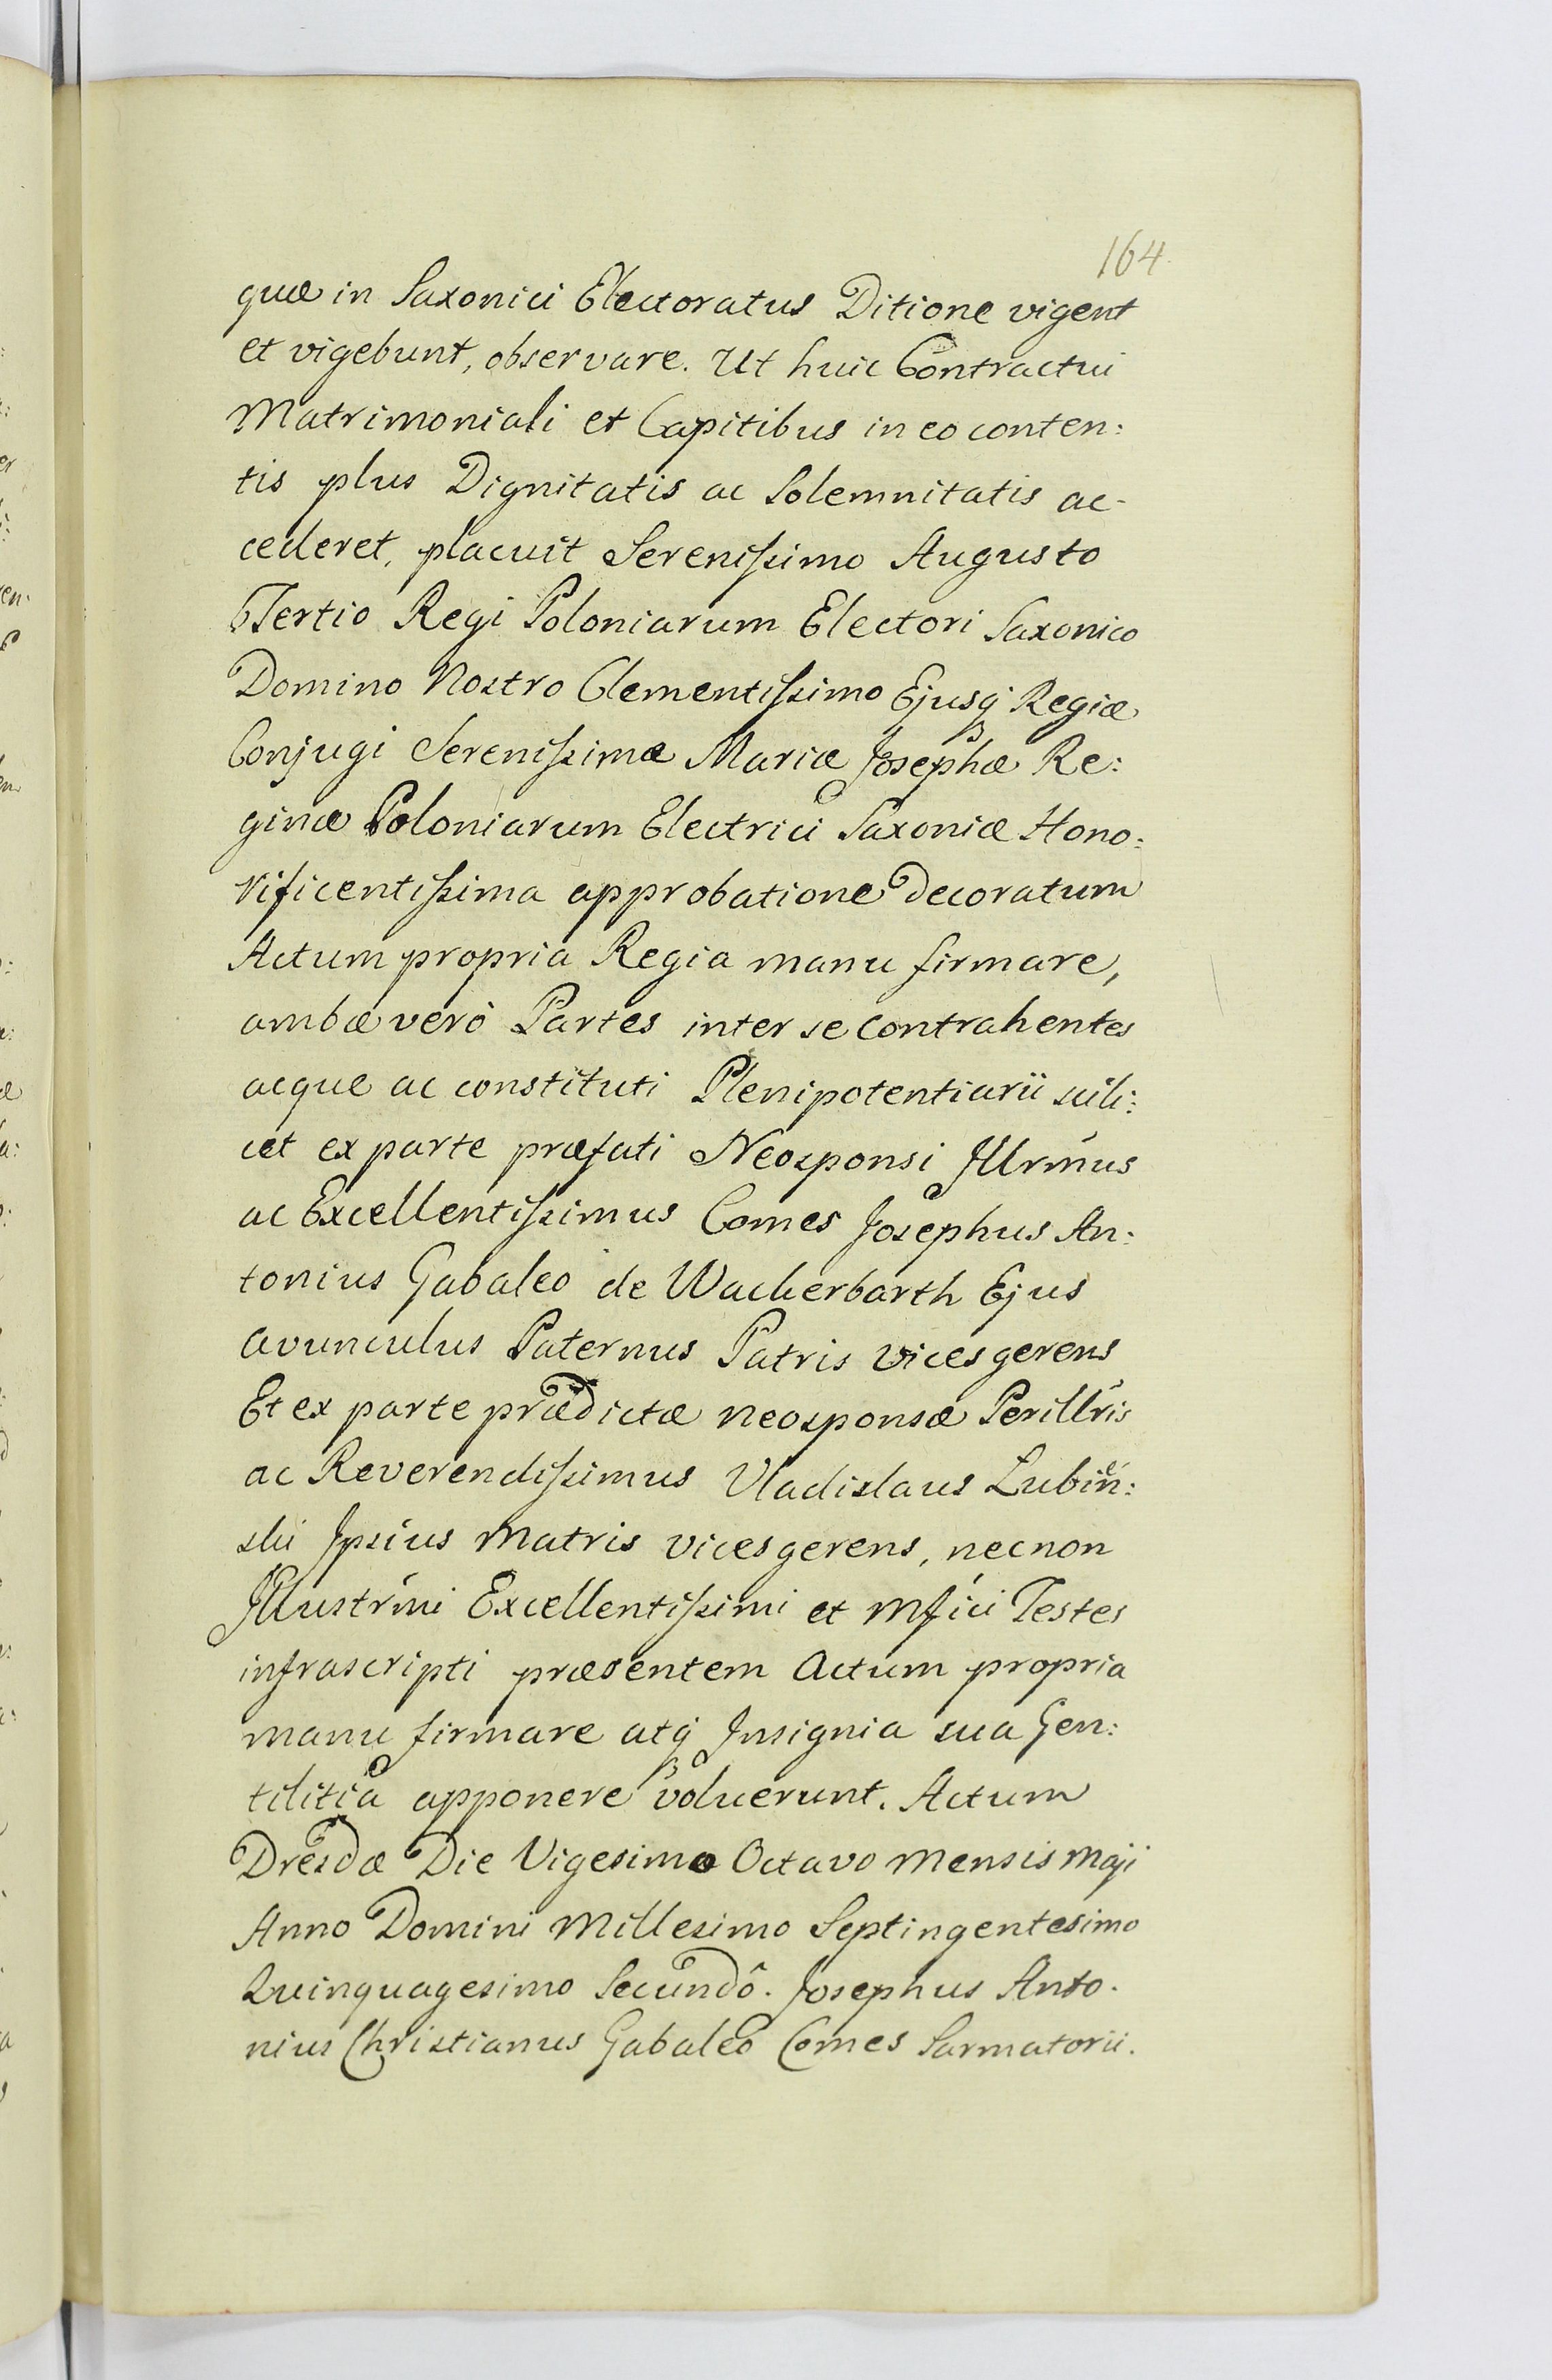 164.
quæ in Saxonici Electoratus Ditione vigent
et vigebunt, observare. Ut huic Contractui
Matrimoniali et Capitibus in eo conten:
tis plus Dignitatis ac Solemnitatis ac-
cederet, placuit Serenissimo Augusto
Tertio Regi Poloniarum Electori Saxonico
Domino Nostro Clementissimo Ejusq́ Regiæ
Conjugi Serenissimæ Mariæ Josephæ Re:
ginæ Poloniarum Electrici Saxoniæ Hono:
rificentissima approbatione decoratum
Actum propria Regia manu firmare,
ambæ verò Partes inter se contrahentes
æque ac constituti Plenipotentiarii scili:
cet ex parte præfati Neosponsi Jllrmus
ac Excellentissimus Comes Josephus An:
tonius Gabaleo de Wackerbarth Ejus
avunculus Paternus Patris vices gerens
Et ex parte prædictæ neosponsæ Perillris
ac Reverendissimus Vladislaus Łubień:
ski Jpsius Matris vices gerens, necnon
Jllustrmi Excellentissimi et Mfici Testes
infrascripti præsentem Actum propria
manu firmare atq́ Jnsignia sua Gen:
tilitia apponere voluerunt. Actum
Dresdæ Die Vigesima Octavo Mensis Maji
Anno Domini Millesimo Septingentesimo
Quinquagesimo Secundô. Josephus Anto.
nius Christianus Gabaleo Comes Sarmatorii.